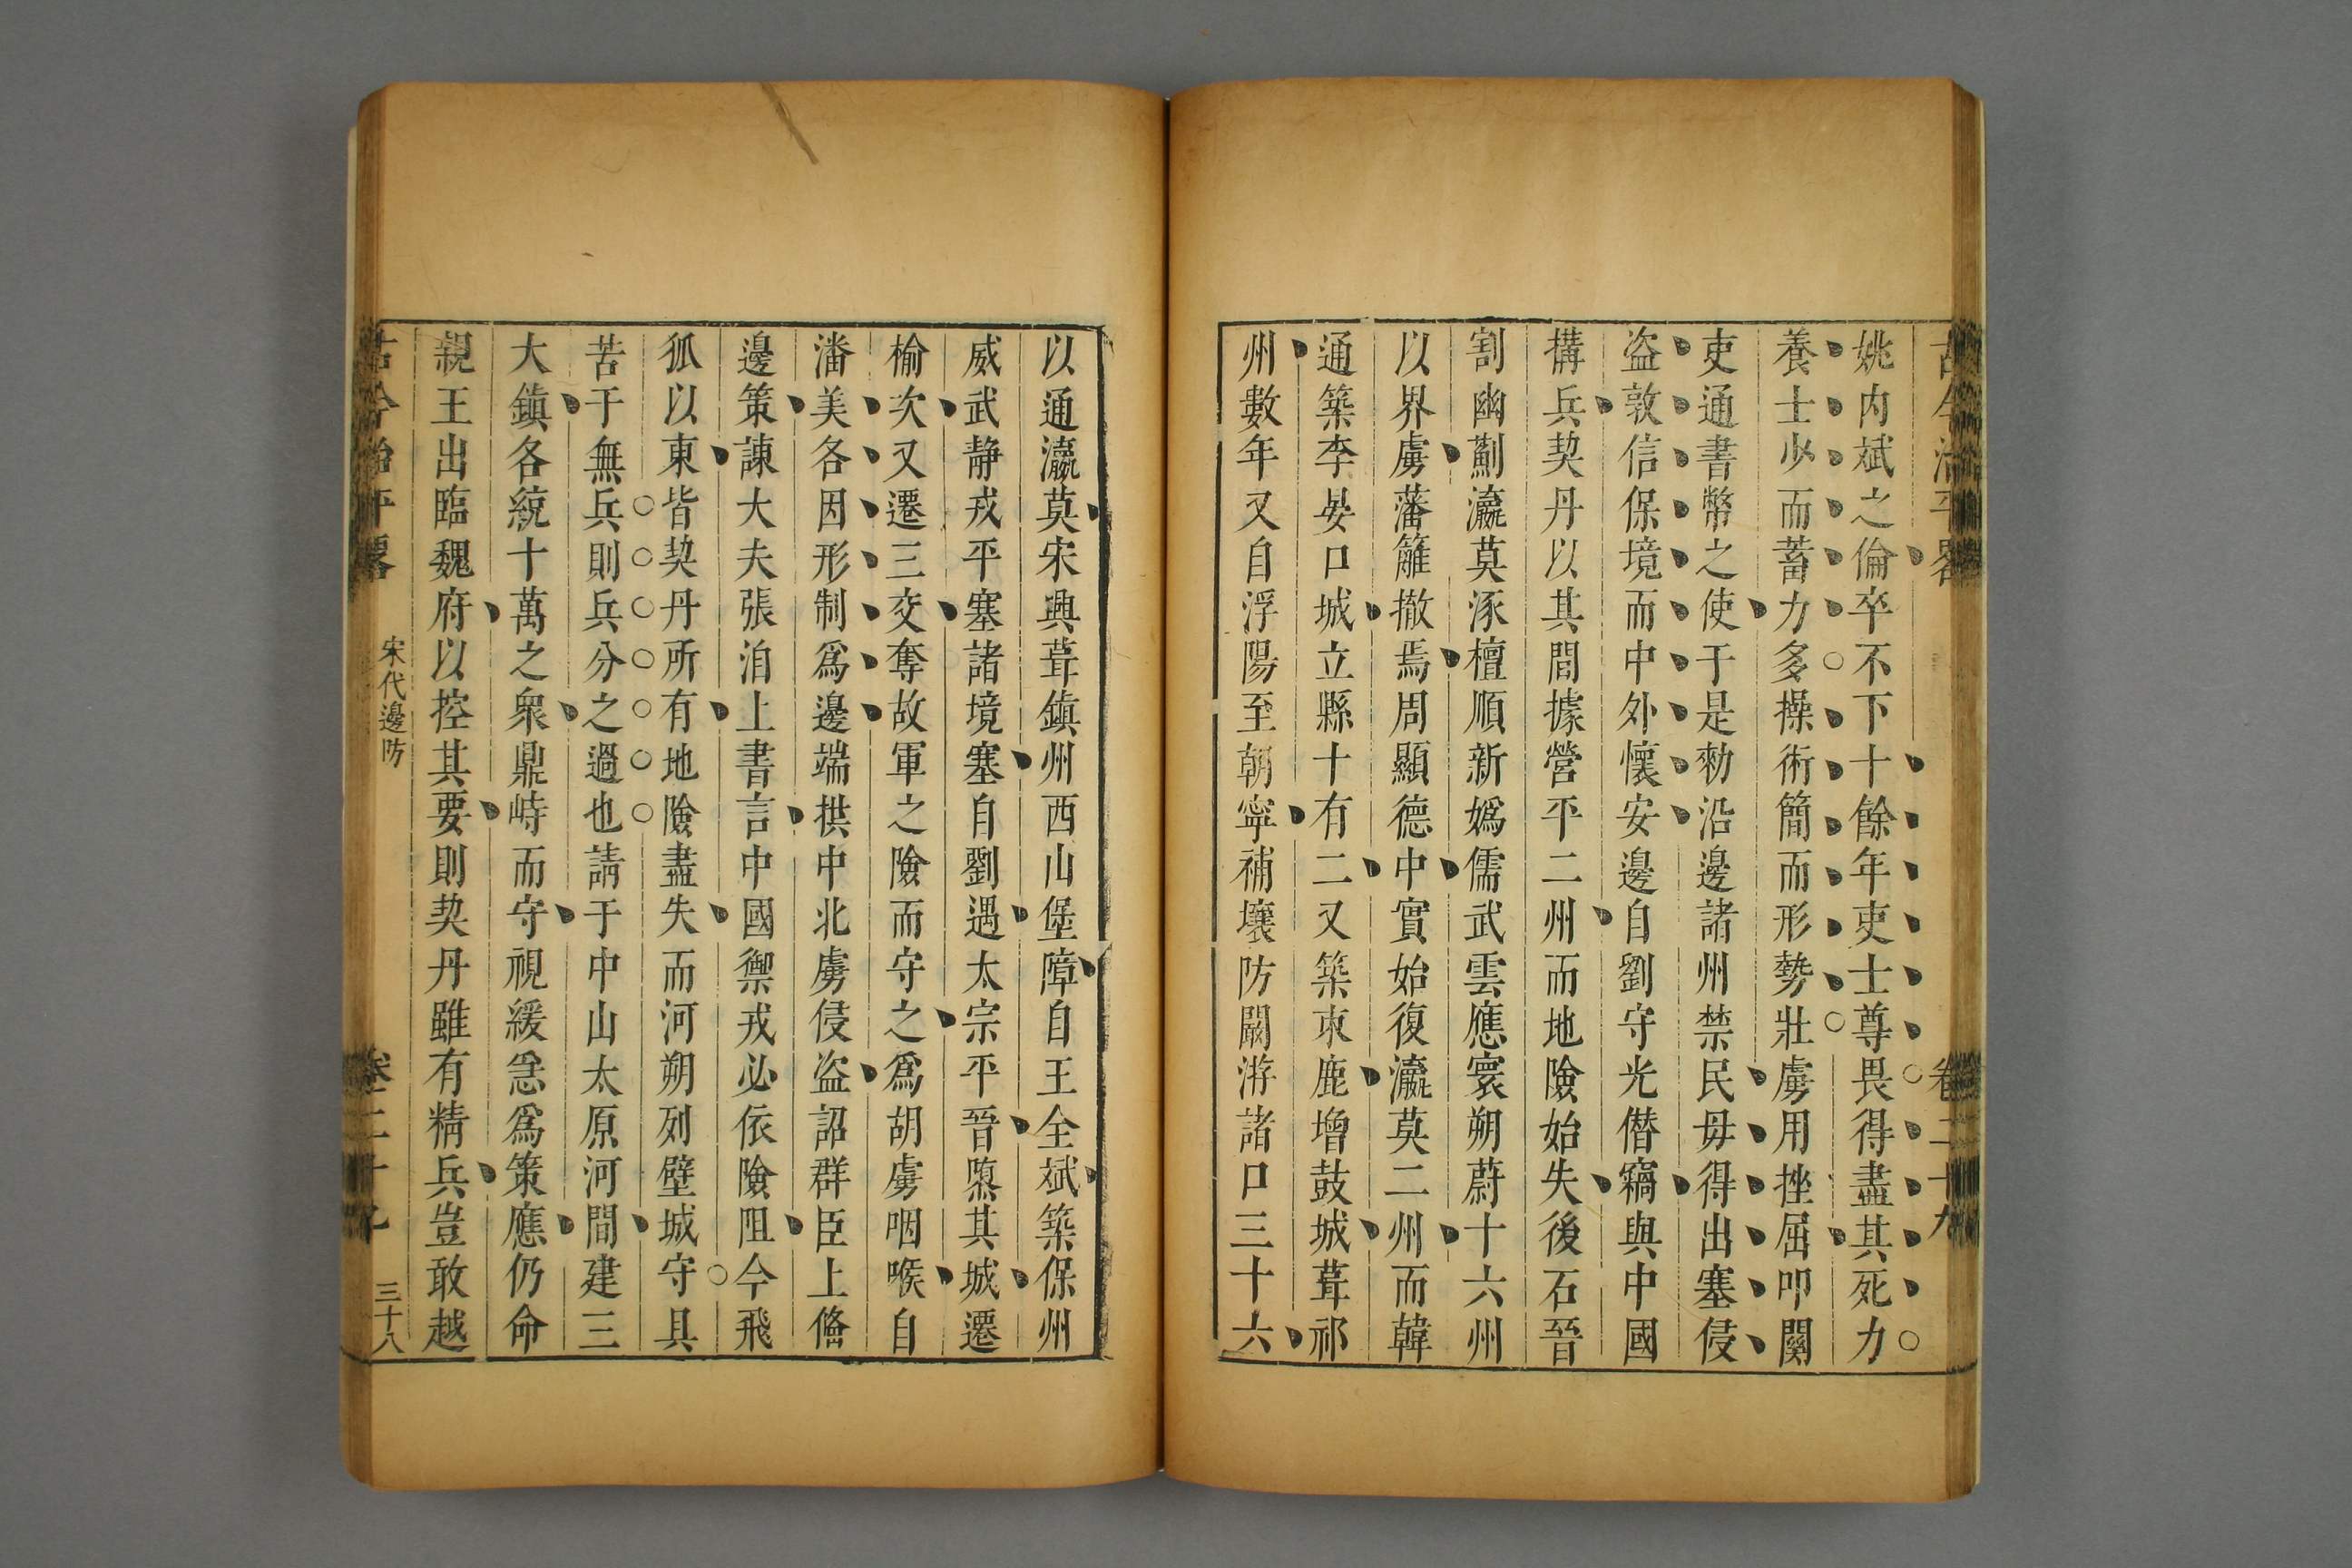 古今治平畧 卷二十九
姚内斌之倫卒不下十餘年吏士尊畏得盡其死力
養士少而蓄力多操術簡而形勢壯虜用挫屈叩關
吏通書幣之使于是勑沿邊諸州禁民毋得出塞侵
盜敦信保境而中外懷安邊自劉守光僣竊與中國
搆兵契丹以其間據營平二州而地險始失後石晉
割幽薊瀛莫涿檀順新媯儒武雲應寰朔蔚十六州
以界虜藩籬撤焉周顯德中實始復瀛莫二州而韓
通築李晏口城立縣十有二又築束鹿增鼓城葺祁
州數年又自浮陽至朝寧補壞防闢游諸口三十六
以通瀛莫宋興葺鎮州西山堡障自王全斌築保州
威武靜戎平塞諸境塞自劉遇太宗平晉隳其城遷
榆次又遷三交奪故軍之險而守之爲胡虜咽喉自
潘美各因形制爲邊端拱中北虜侵盜詔群臣上俻
邊策諫大夫張洎上書言中國禦戎必依險阻今飛
狐以東皆契丹所有地險盡失而河朔列壁城守具
苦于無兵則兵分之過也請于中山太原河間建三
大鎮各統十萬之衆鼎峙而守視緩急爲策應仍命
親王出臨魏府以控其要則契丹雖有精兵豈敢越
古今治平畧 宋代邊防 卷二十九 三十八